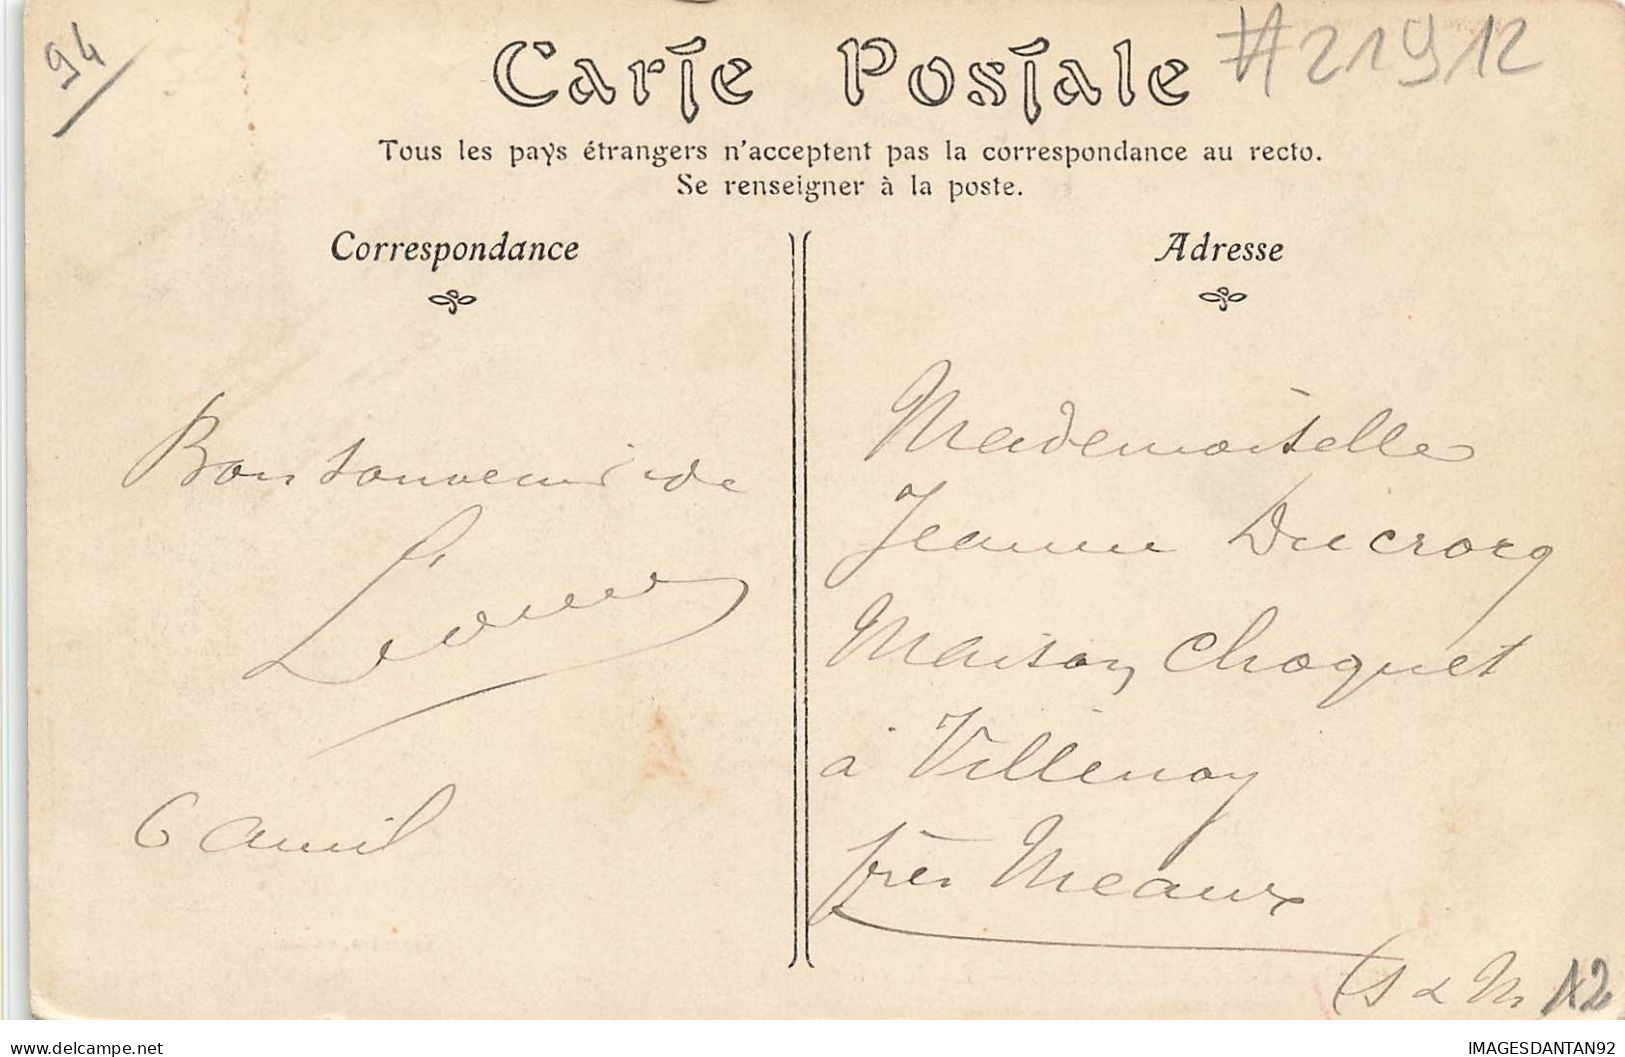 94
#21912
Carte Postale
Tous les pays étrangers n'acceptent pas la correspondance au recto.
Se renseigner à la poste.
Correspondance
Bon souvenir de
6 avril
Adresse
Mademoiselle
Jeanne Ducrocq
Maison Choquet
à Villenoy
près Meaux
(S & M
12
delcampe.net
IMAGESDANTAN92